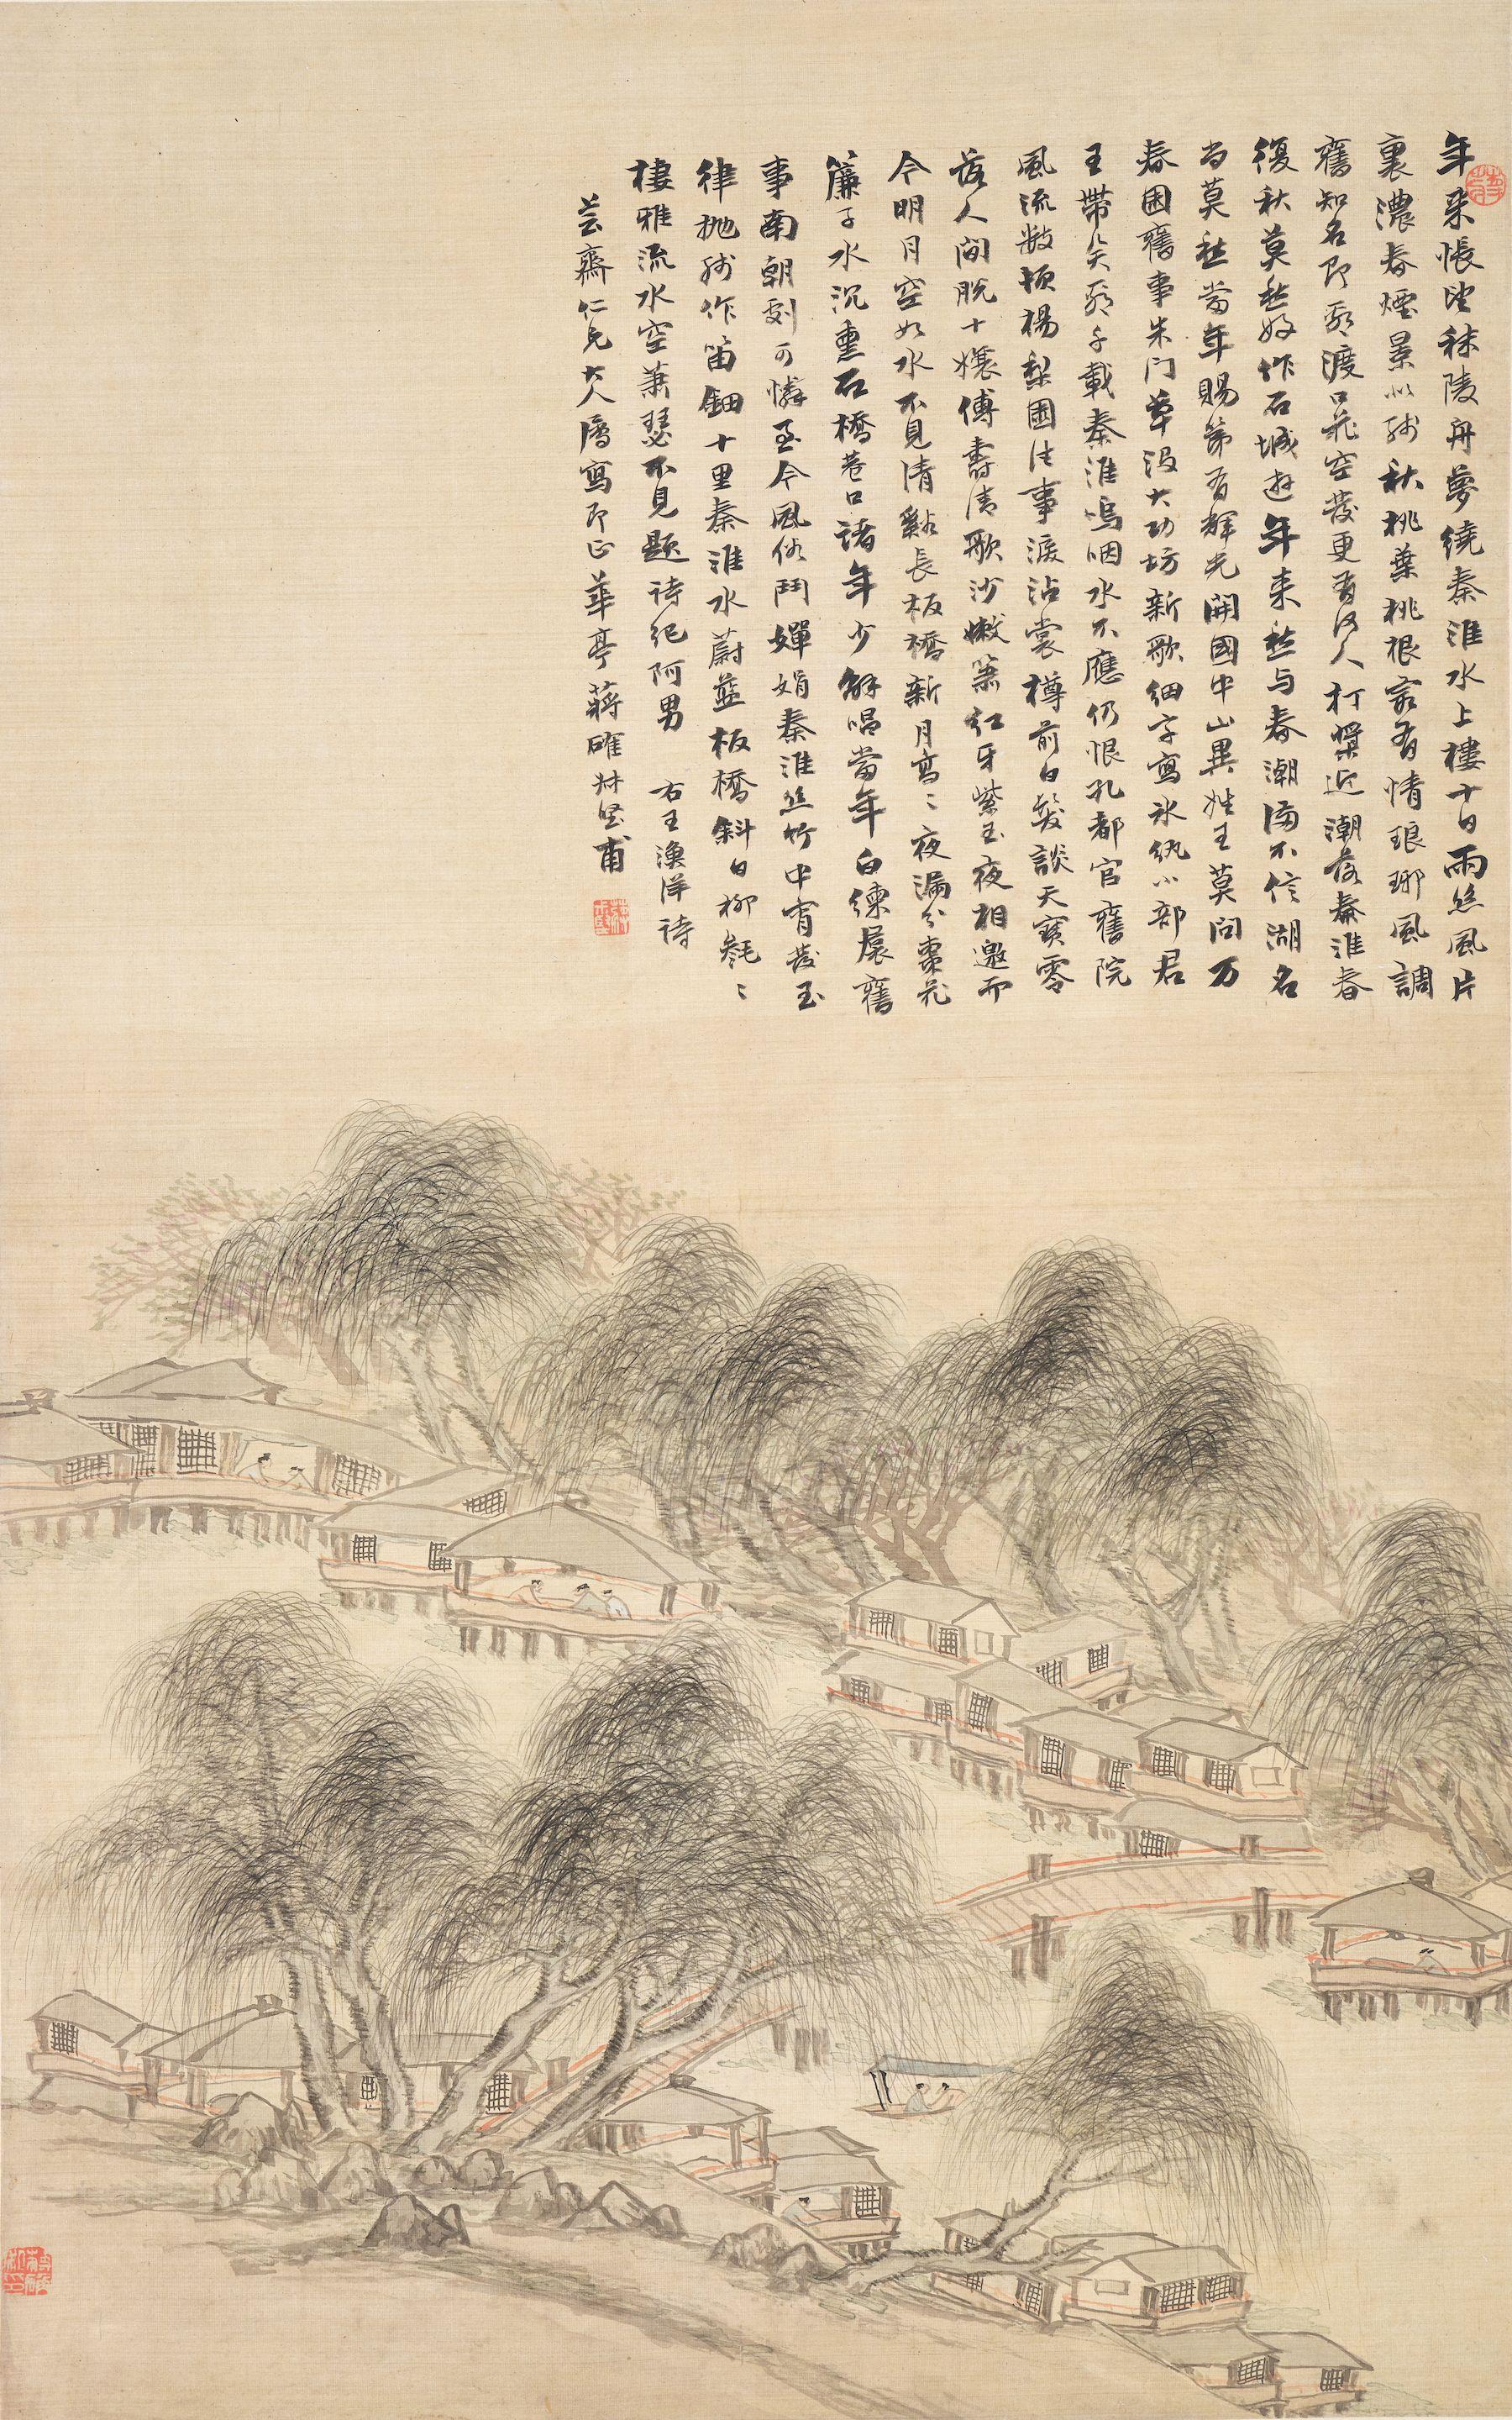 年来悵望秣陵舟夢繞秦淮水上樓十日雨絲風片
裏濃春煙景似殘秋桃葉桃根最有情琅琊風調
舊知名即看渡口花空發更有何人打槳迎潮落秦淮春
復秋莫愁好作石城遊年来愁与春潮滿不信湖名
尚莫愁當年賜第有輝光開國中山異姓王莫問万
春園舊事朱門草沒大功坊新歌細字寫冰紈小部君
王帶笑看千載秦淮嗚咽水不應仍恨孔都官舊院
風流數頓楊梨園往事淚沾裳樽前白髮談天寶零
落人間脫十孃傅壽清歌沙嫩簫紅牙紫玉夜相邀而
今明月空如水不見清谿長板橋新月高〻夜漏分棗花
簾子水沉熏石橋巷口諸年少解唱當年白練裙舊
事南朝劇可憐至今風俗鬥嬋娟秦淮絲竹中宵發玉
律抛殘作笛鈿十里秦淮水蔚藍板橋斜日柳毿〻
棲雅流水空蕭瑟不見題詩紀阿男 右王漁洋詩
芸齋仁兄大人屬寫即正 華亭蔣確叔堅甫